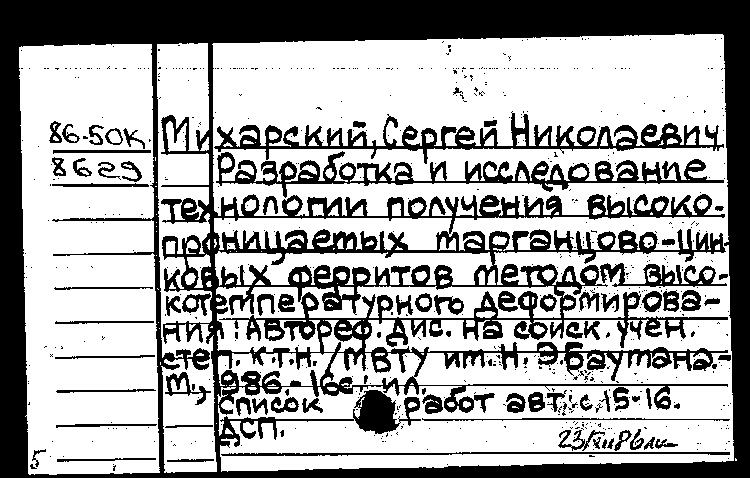 86-50к Михарский, Сергей Николаевич
8629 Разработка и исследование
технологии получения высоко-
проницаемых марганцово-цин-
ковых ферритов методом высо-
котемпературного деформирова-
ния: Автореф. дис. на соиск. учен.
степ. к.т.н. / МВТУ им. Н. Э. Баумана.-
М., 1986.- 16с: ил.
Список работ авт: с. 15-16.
ДСП.
5